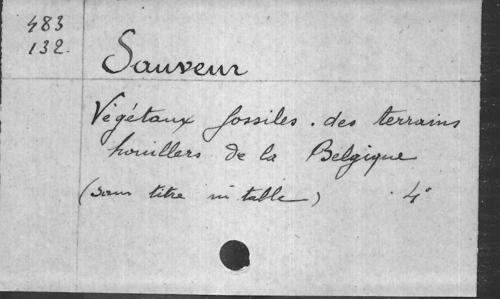 483
132.
Sauveur
Végétaux fossiles. des terrains
houillers de la Belgique
(sans titre ni table) 4°